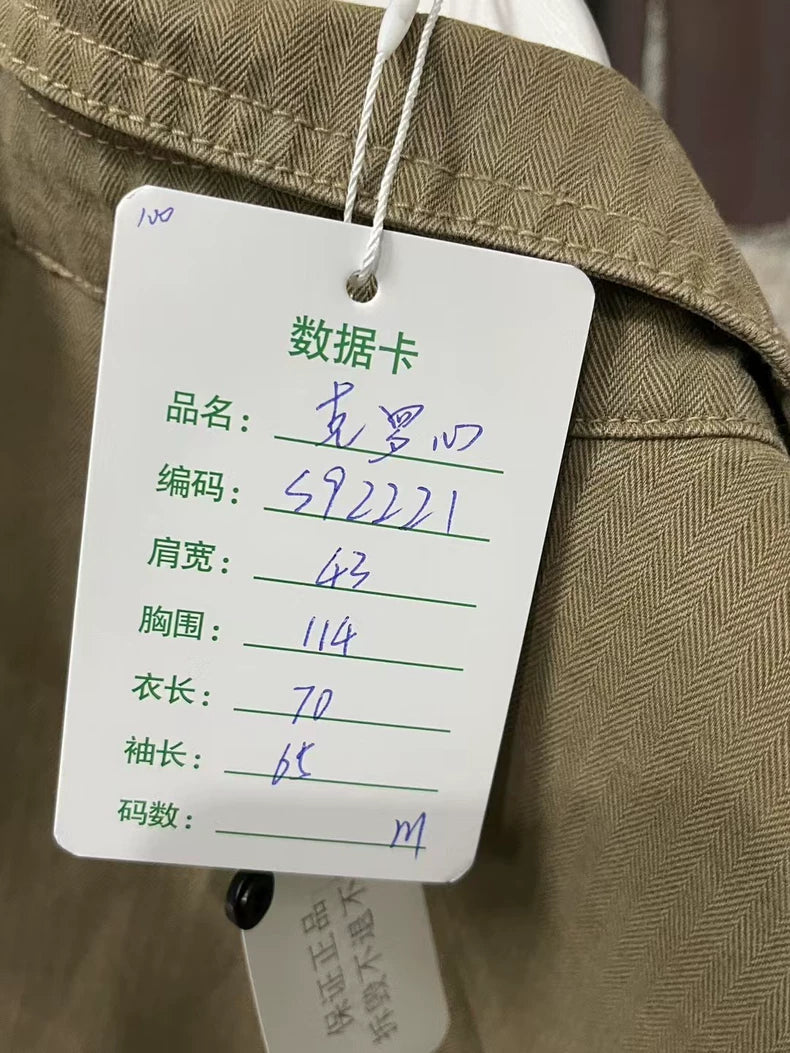 100
数据卡
品名：克罗心
编码：S92221
肩宽：43
胸围：114
衣长：70
袖长：65
码数：M
保证正品
拆毁不退不